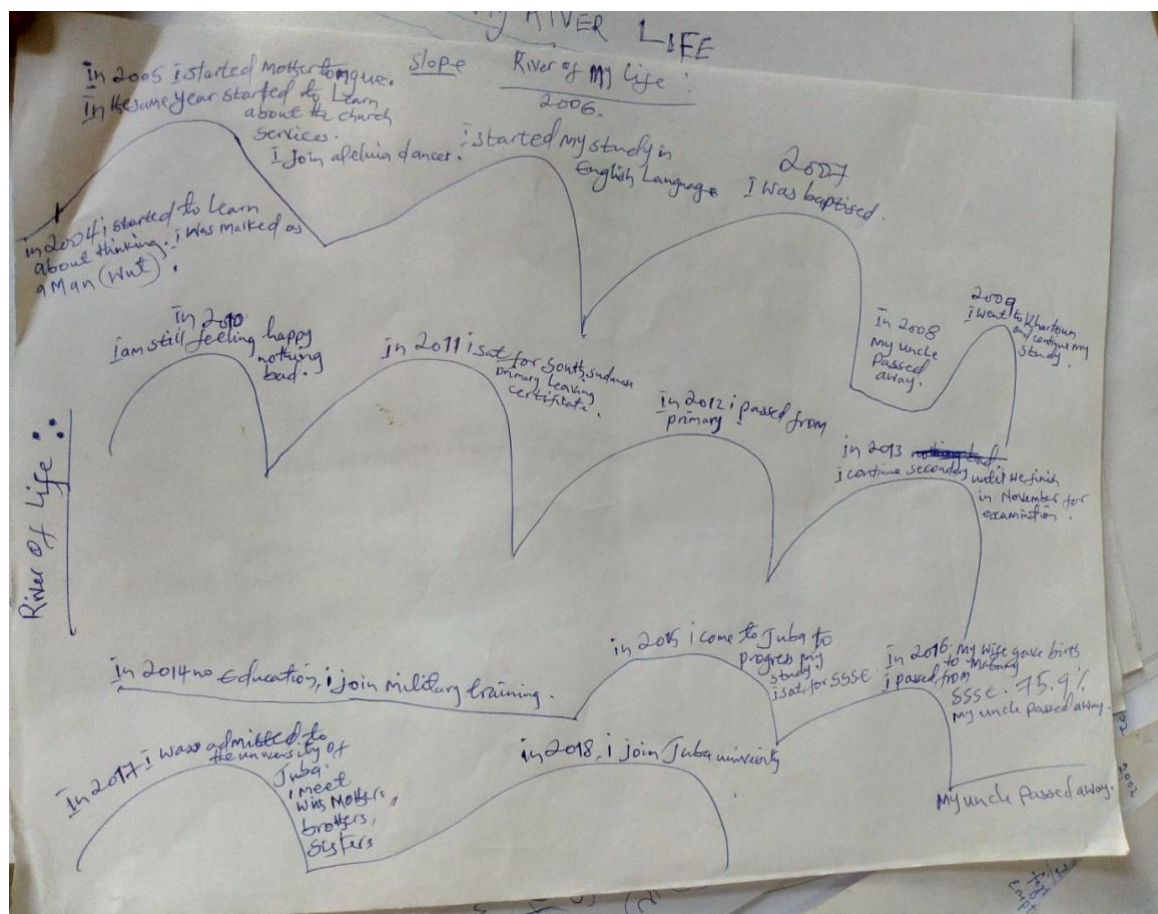 My RIVER LIFE
slope
River of My life :
2006.
In 2005 i started mother tongue.
In the same year started to Learn
about the church
services.
I join apeluia dancer.
i started my study in
English Language
2007
i was baptised.
in 2004 i started to Learn
about thinking. i was marked as
a Man (Wut).
In 2008
my uncle
passed
away.
2009
i went to Khartoum
and contiue my
study.
In 2010
I am still feeling happy
nothing
bad.
in 2011 i sat for South sudanese
primary leaving
certificate.
In 2012 i passed from
primary
in 2013
i continue secondary until we finish
in November for
examination.
River Of Life :
in 2014 no Education, i join military training.
in 2015 i come to Juba to
progres my
study.
i sat for SSSE
In 2016, my wife gave births
to
i passed from
SSSE. 75.9%
my uncle passed away.
My uncle passed away.
In 2017 i was admitted to
the university of
Juba.
i meet
with Mothers,
brothers,
sisters
in 2018, i join Juba univeristy
2002